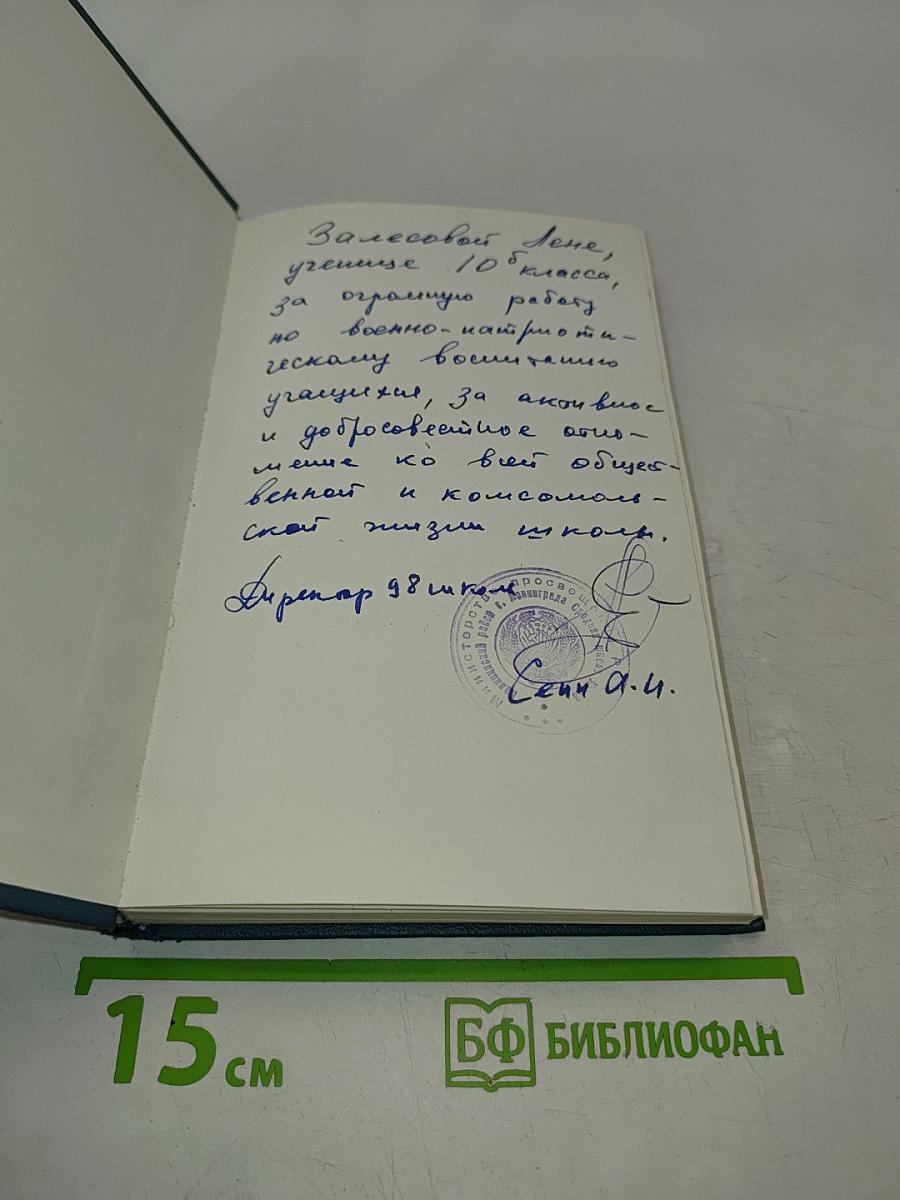 Залесовой Лене,
ученице 10б класса,
за огромную работу
по военно-патриоти-
ческому воспитанию
учащихся, за активное
и добросовестное отно-
шение ко всей общест-
венной и комсомоль-
ской жизни школы.
Директор 98 школы
Министерство просвещ
район г. Ленинграда Средняя
А.И.
15 см
БФ БИБЛИОФАН